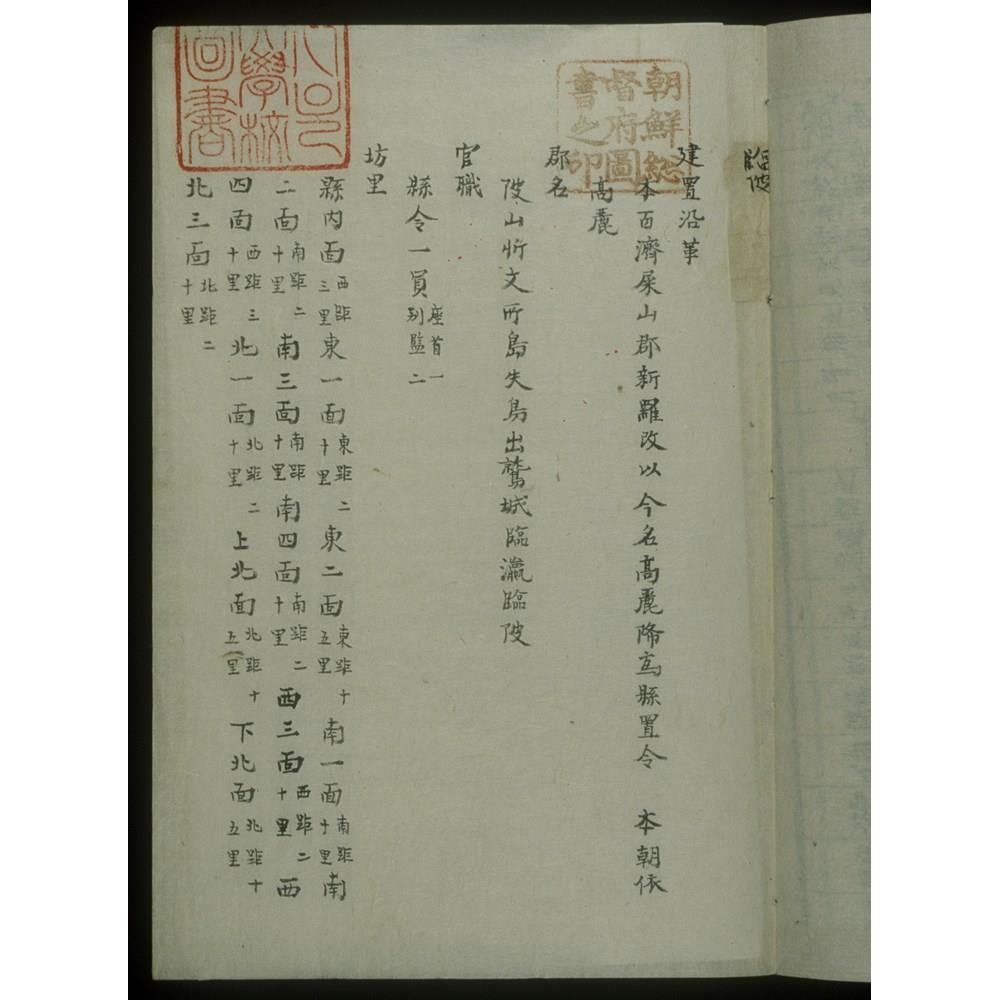 朝鮮總
督府圖
書之印
서울
大學校
圖書
臨陂
建置沿革
本百濟屎山郡新羅改以今名高麗降爲縣置令 本朝依
高麗
郡名
陂山忻文所島失鳥出鷲城臨瀛臨陂
官職
縣令一員座首一別監二
坊里
縣內面西距三里東一面東距二十里東二面東距十五里南一面南距十里南
二面南距二十里南三面南距十里南四面南距二十里西三面西距二十里西
四面西距三十里北一面北距二十里上北面北距十五里下北面北距十五里
北三面北距二十里